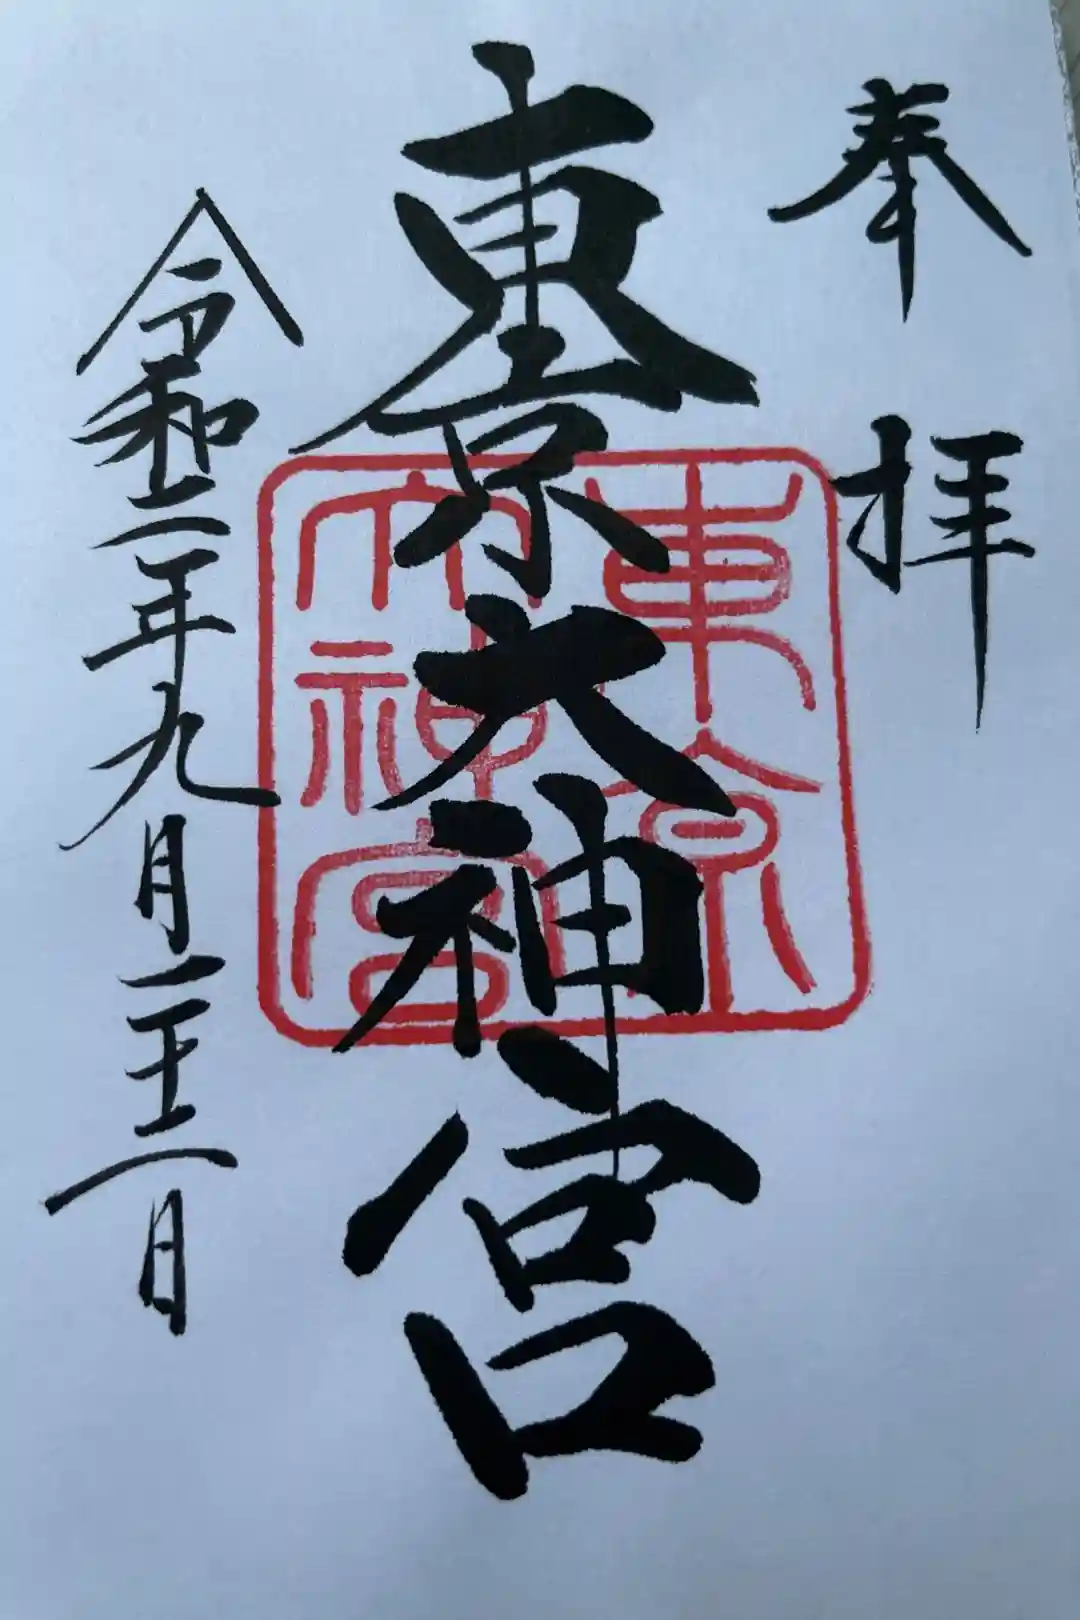 奉拝
東京大神宮
東京
大神宮
令和二年九月二十二日